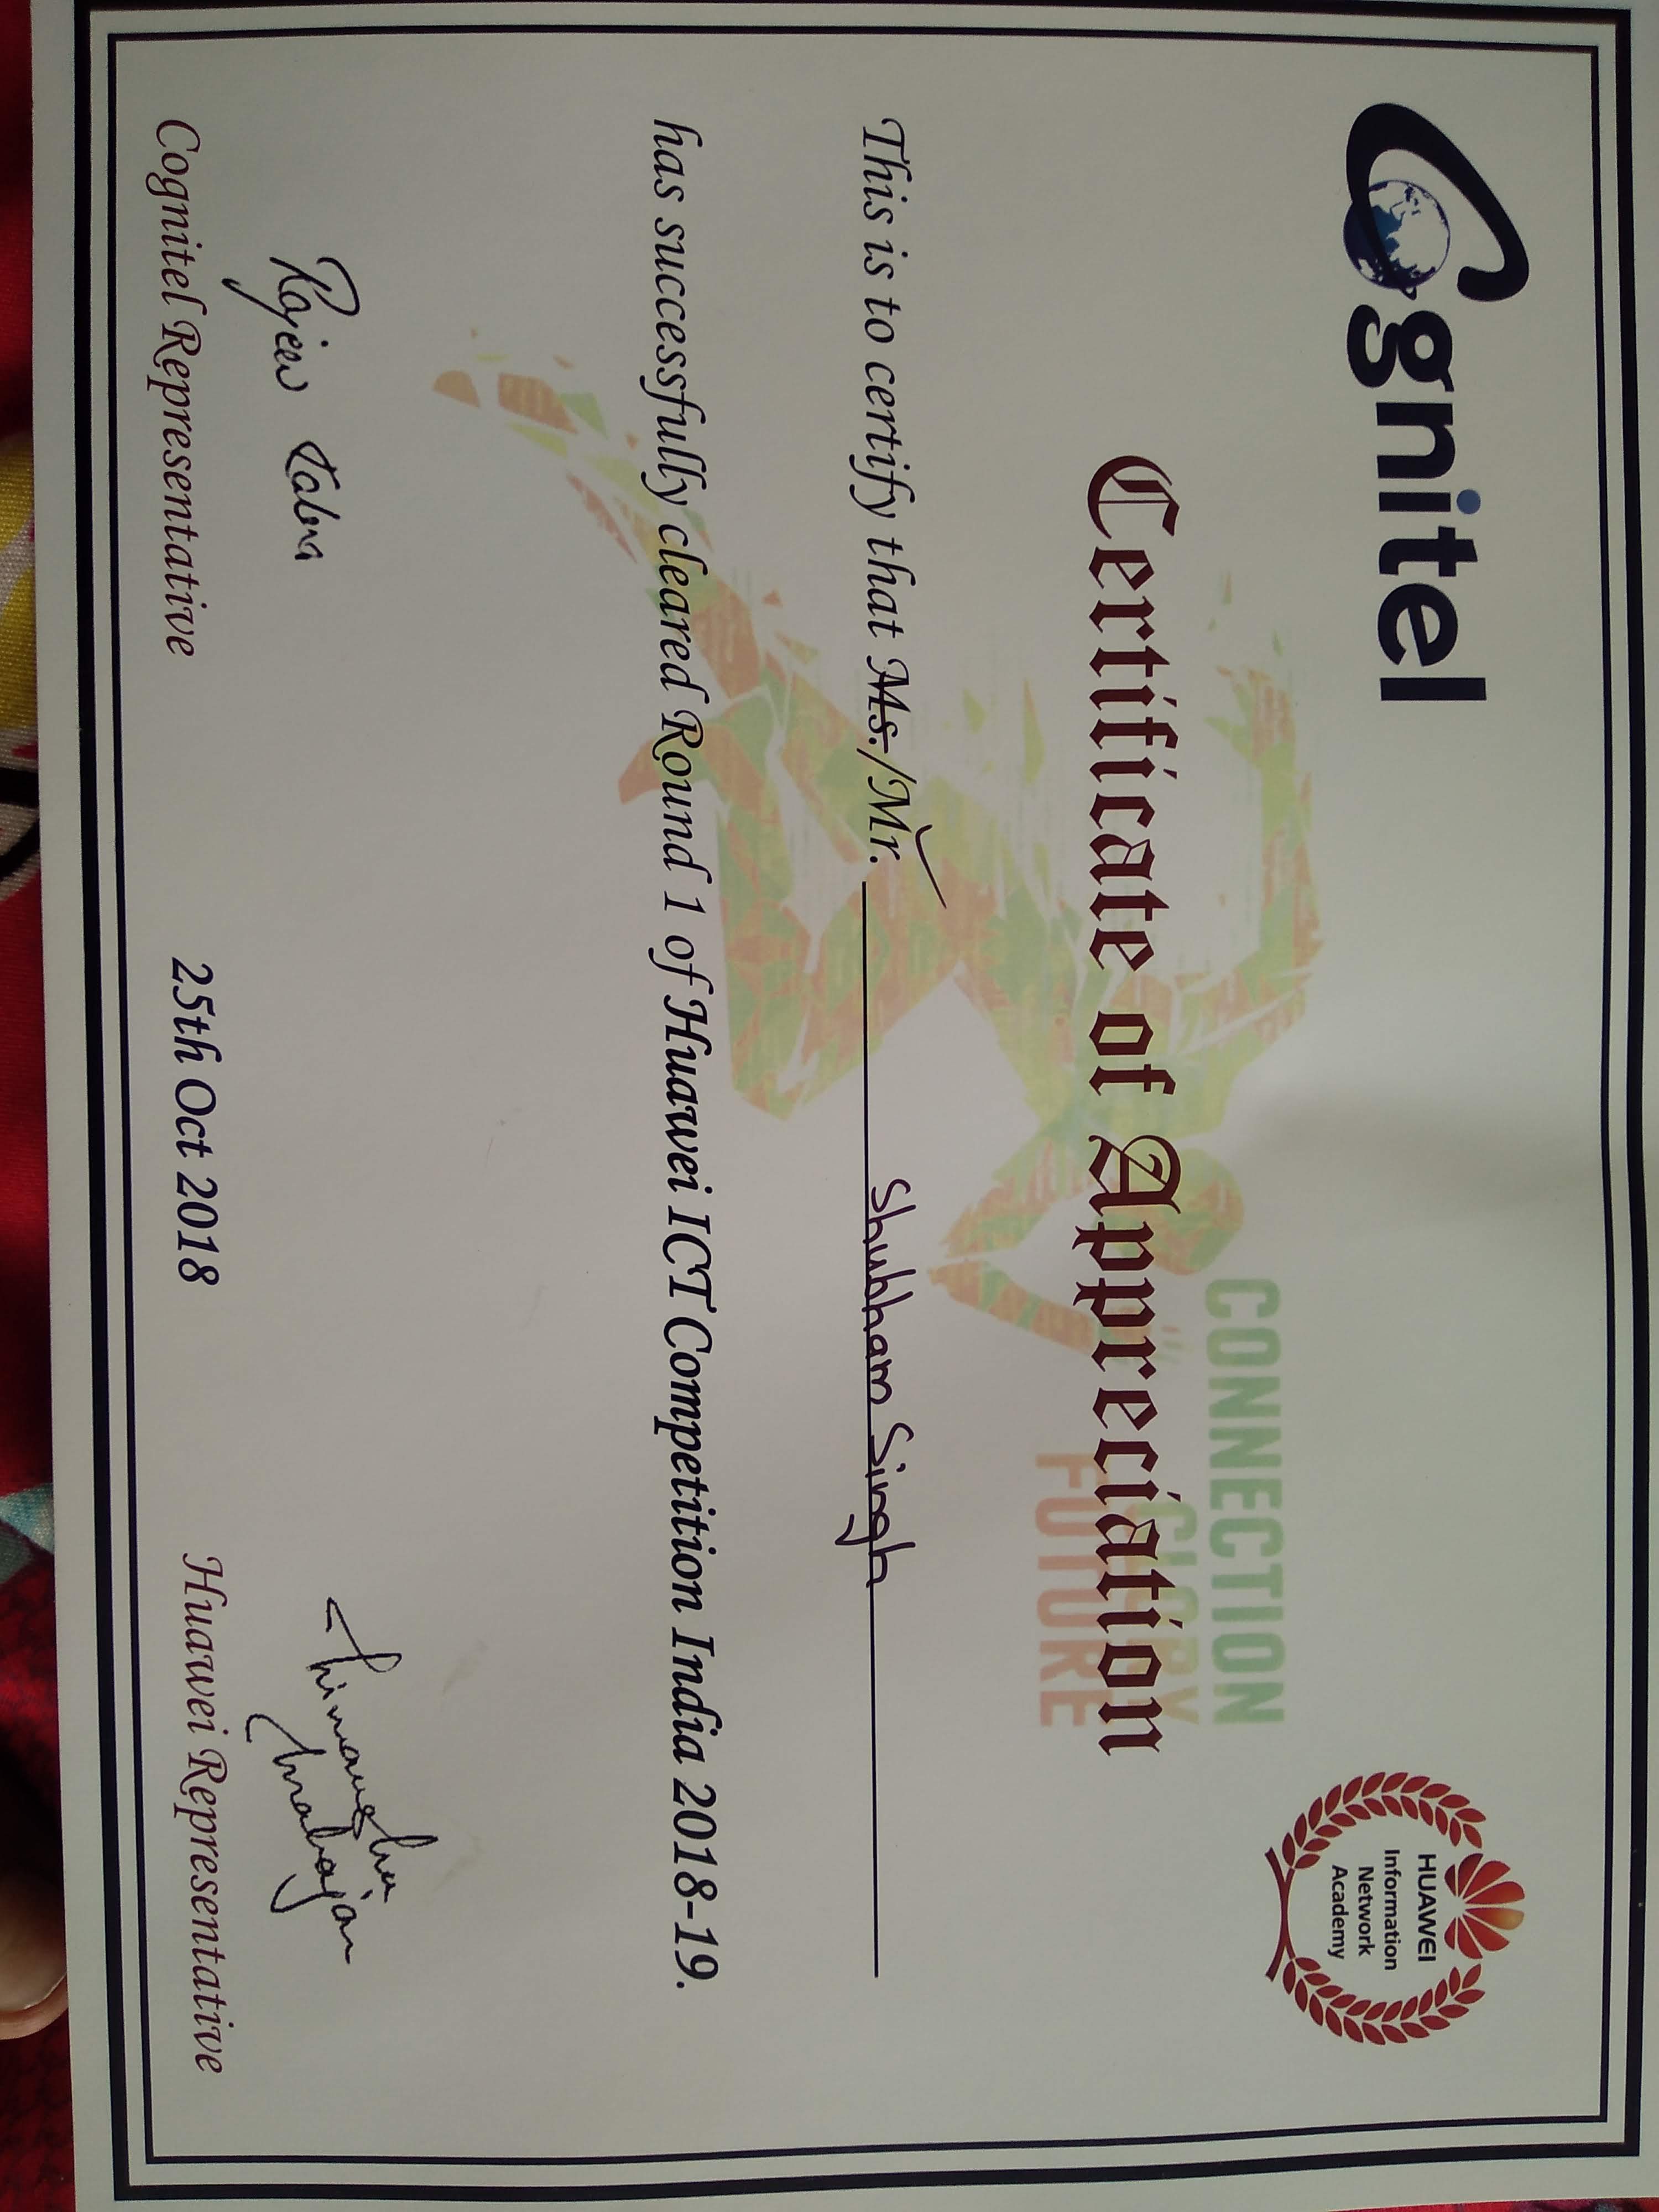 Cognitel
HUAWEI
Information
Network
Academy
CONNECTION
GLORY
FUTURE
Certificate of Appreciation
This is to certify that Ms./Mr. Shubham Singh
has successfully cleared Round 1 of Huawei ICT Competition India 2018-19.
Rajeev Kabra
Himanshu
Mahajan
Cognitel Representative
25th Oct 2018
Huawei Representative